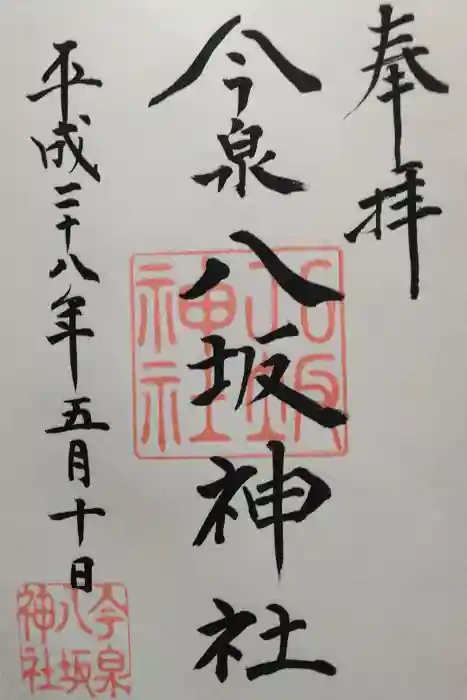 奉拝
今泉八坂神社
平成二十八年五月十日
八坂
神社
今泉
八坂
神社